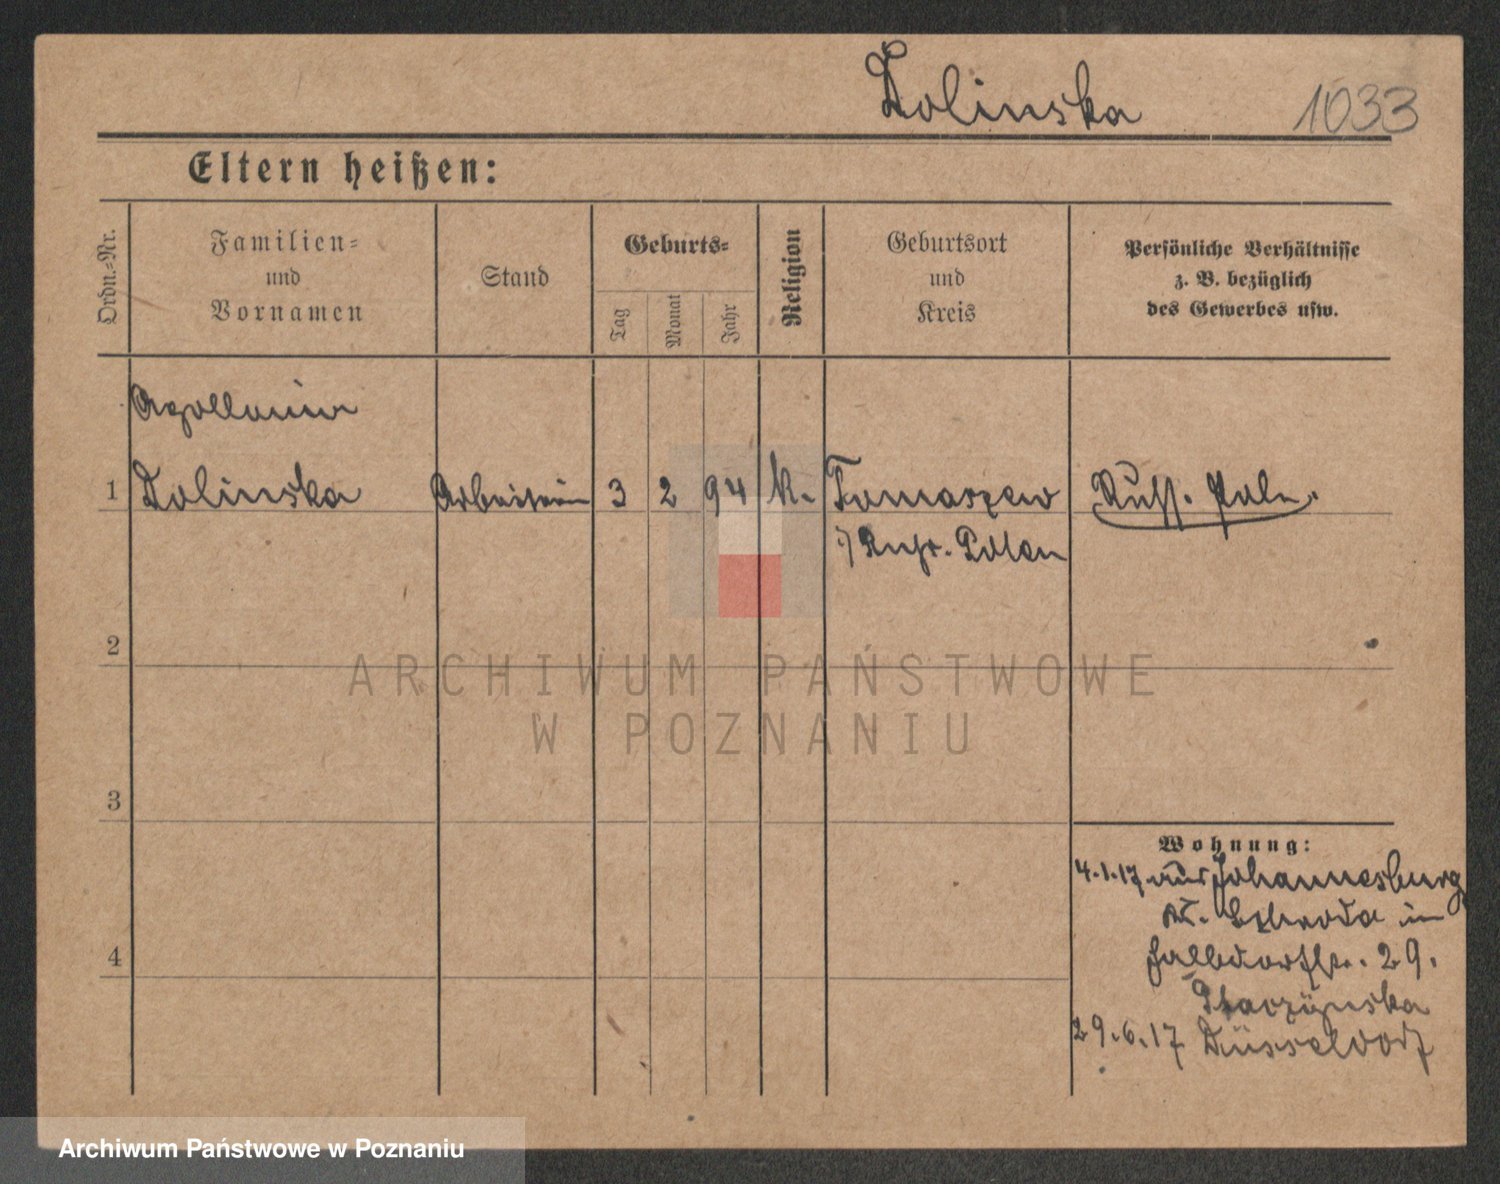 Dolinska 1033
Eltern heißen:
Ordn.-Nr.
Familien-
und
Vornamen
Stand
Geburts-
Tag
Monat
Jahr
Religion
Geburtsort
und
Kreis
Persönliche Verhältnisse
z. B. bezüglich
des Gewerbes usw.
Apollonia
1 Dolinska Arbeiterin 3 2 94 k. Tomaszew Russ. Pole.
Russ. Polen
2
3
4
Wohnung:
4.1.17 aus Johannesburg
Kr. Schroda in
29.
29.6.17 Düsseldorf
ARCHIWUM PAŃSTWOWE
W POZNANIU
Archiwum Państwowe w Poznaniu